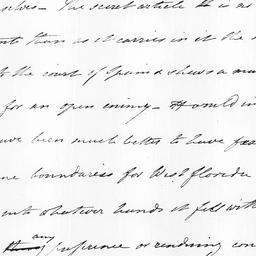 selves - The secret article It is as
into them as it carries in it the s
to the court of Spain & shews a mu
for an open enimy - It would in
have been much better to have
ne boundaress for West floredea
into whatever hands it fell with
any
preference or rendring con